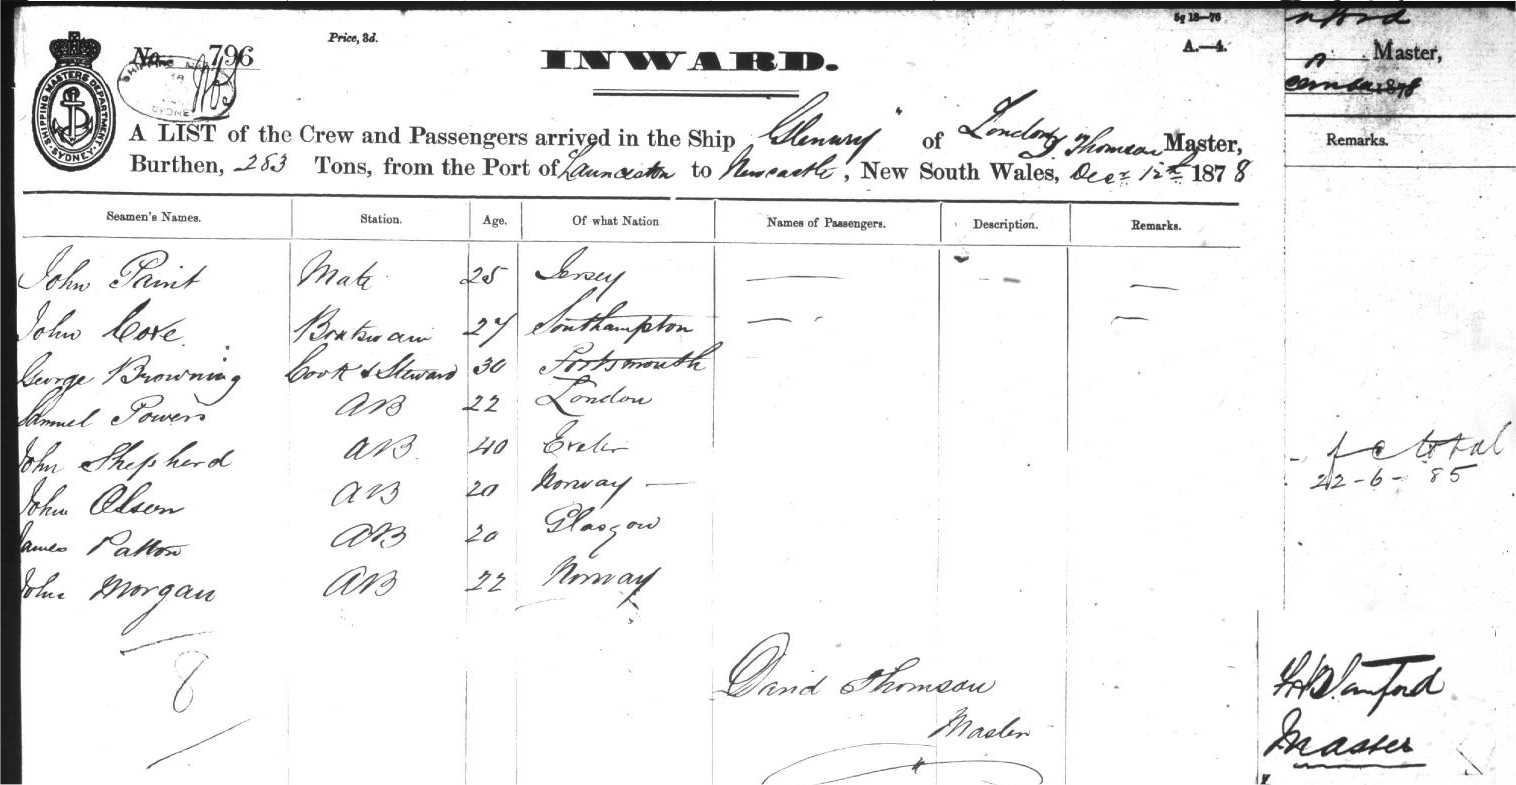 5g 18—76
nford
No. 796
Price, 3d.
INWARD.
A.—4.
Master,
SHIPPING MASTERS DEPARTMENT
SYDNEY
1878
A LIST of the Crew and Passengers arrived in the Ship of London D Thomson Master,
Remarks.
Burthen, 283 Tons, from the Port of Launceston to Newcastle, New South Wales, Decr 12th 1878
Seamen's Names. Station. Age. Of what Nation Names of Passengers. Description. Remarks.
John Paint Mate 25 Jersey — — —
John Cove Boatswain 27 Southampton — —
George Browning Cook & Steward 30 Portsmouth
Samuel Powers AB 22 London
John Shepherd AB 40 Exeter
total
John Olsen AB 20 Norway —
22-6-85
James Patton AB 20 Glasgow
John Morgan AB 22 Norway
8
David Thomson
Master
Stanford
Master